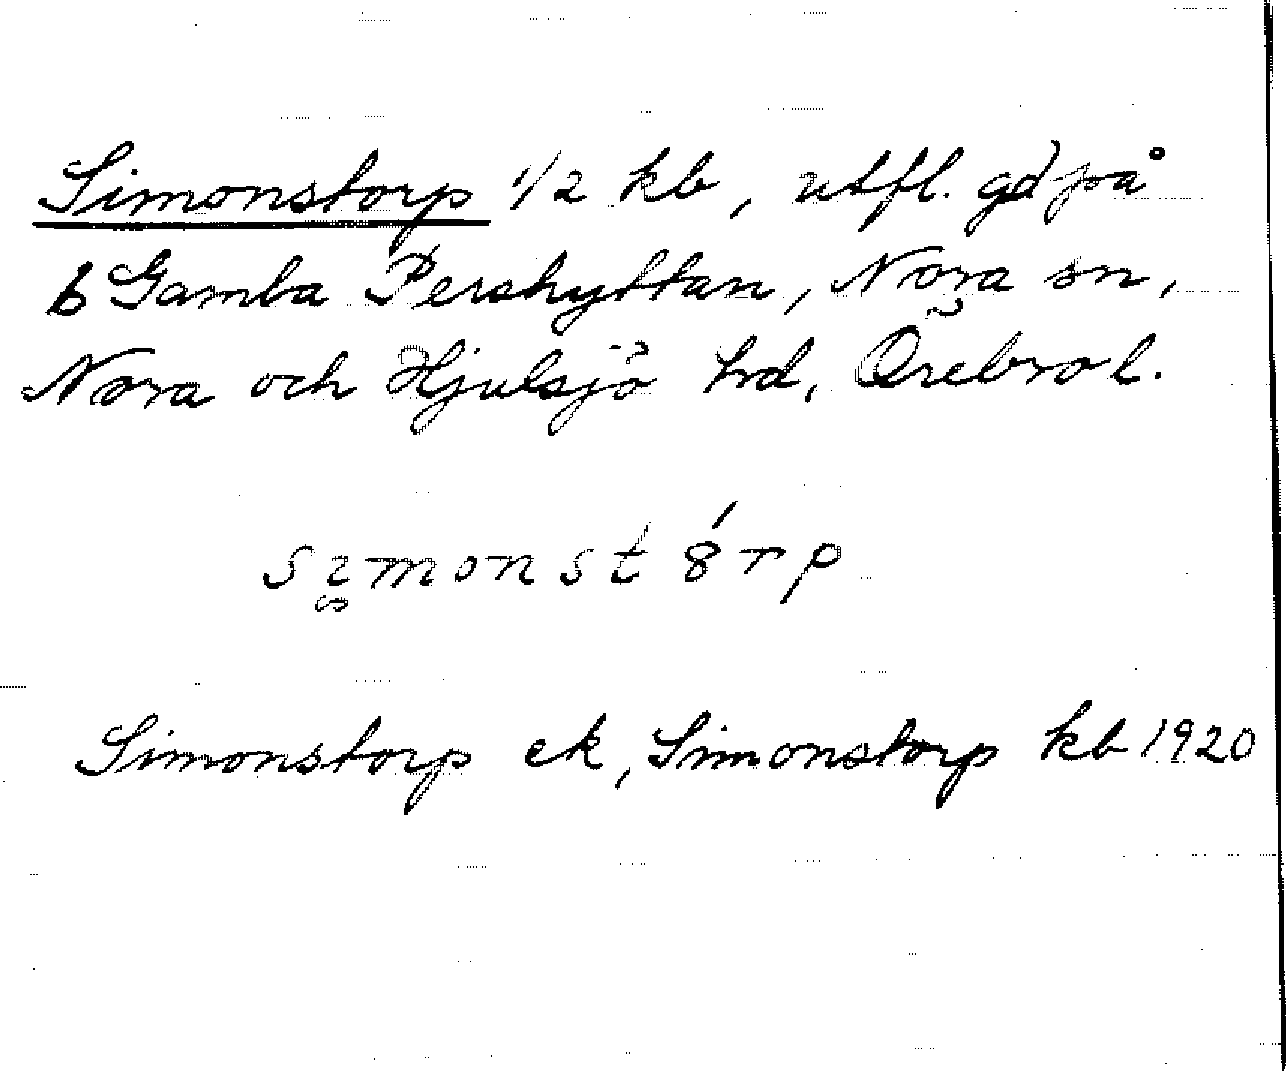 Simonstorp 1/2 kb, utfl. gd på
b Gamla Pershyttan, Nora sn,
Nora och Hjulsjö hd, Örebro l.
Simonstorp ek, Simonstorp kb 1920